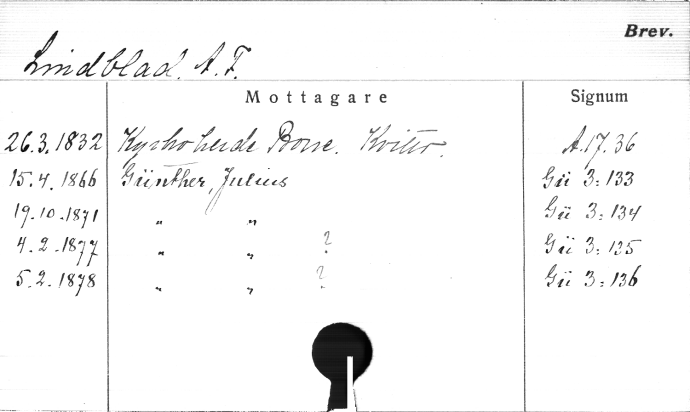 Brev.
Lindblad, A. F.
Mottagare Signum
26.3.1832 Kyrkoherde Kvitto. A.17.36
15.4.1866 Günther, Julius Gü 3:133
19.10.1871 " " Gü 3:134
4.2.1877 " " ? Gü 3:135
5.2.1878 " " ? Gü 3:136